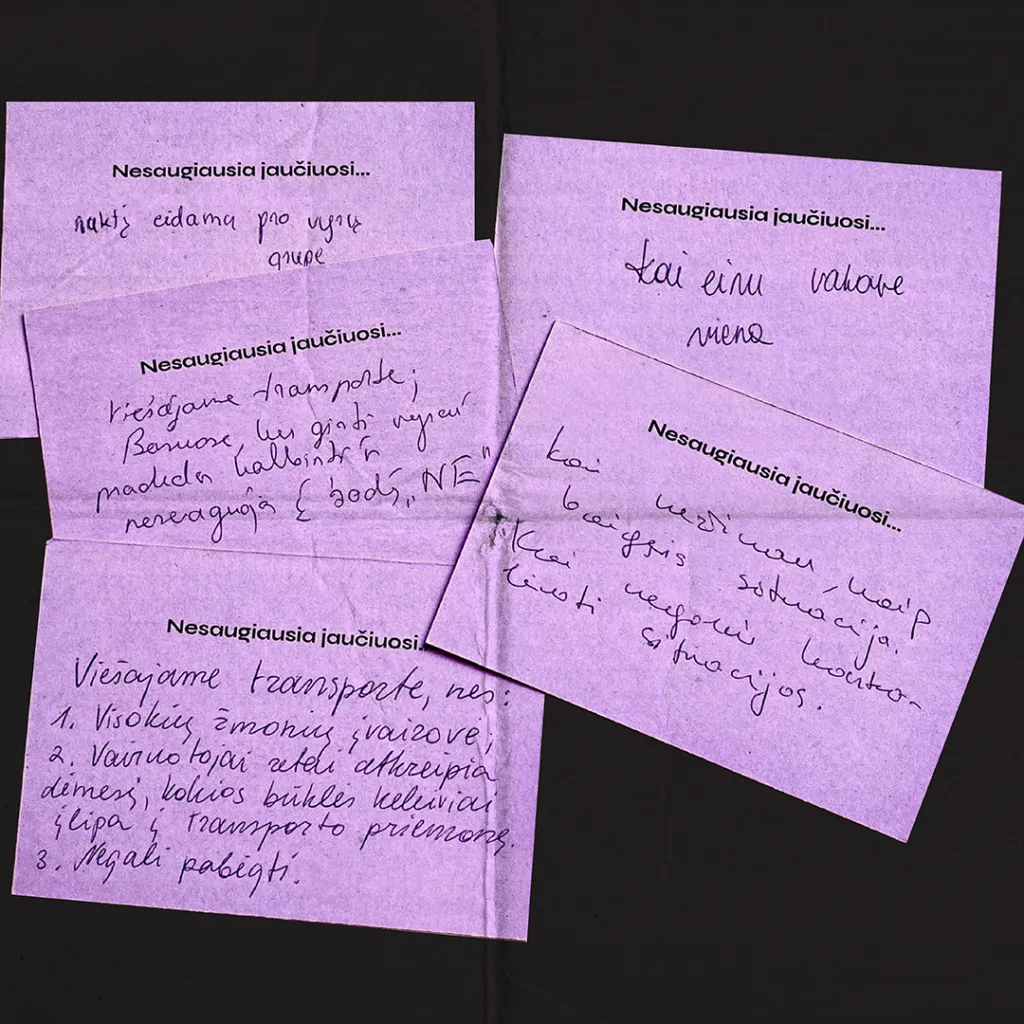 Nesaugiausia jaučiuosi...
naktį eidama pro vyrų
grupę
Nesaugiausia jaučiuosi...
kai einu vakare
viena
Nesaugiausia jaučiuosi...
Viešajame transporte;
Baruose, kur girti vyrai
pradeda kalbinti ir
nereaguoja į žodį „NE"
Nesaugiausia jaučiuosi...
kai nežinau, kaip
baigsis situacija.
Kai negaliu kontro-
liuoti situacijos.
Nesaugiausia jaučiuosi.
Viešajame transporte, nes:
1. Visokių žmonių įvairovė;
2. Vairuotojai retai atkreipia
dėmesį, kokios būklės keleiviai
įlipa į transporto priemonę.
3. Negali pabėgti.